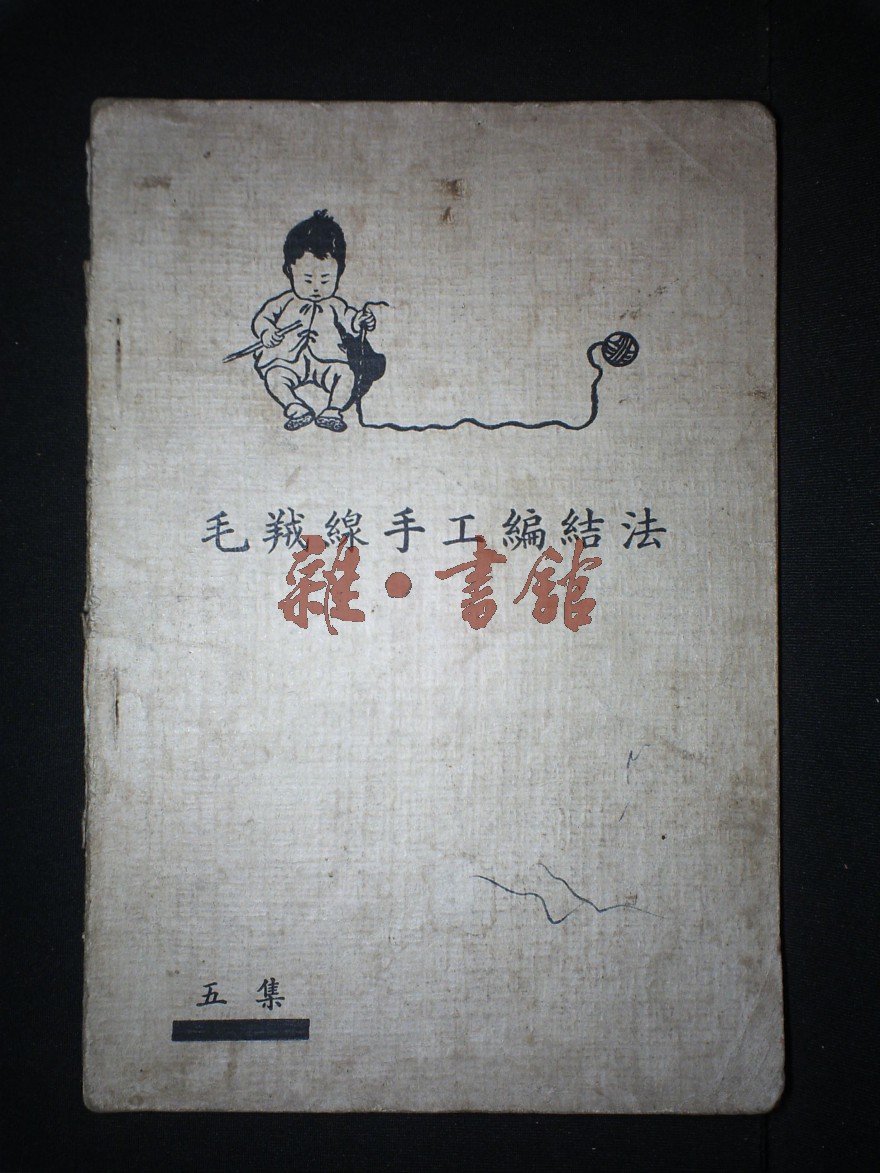 毛羢線手工編結法
雜·書館
五集